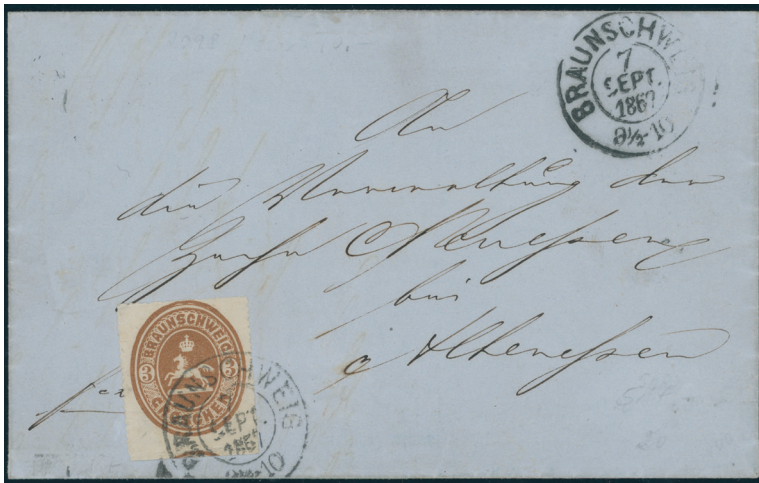 BRAUNSCHWEIG
7
SEPT.
1867
9½-10
An
die Verwaltung der
Zeche Neuessen
bei
Altenessen
BRAUNSCHWEIG
3 3
GROSCHEN
BRAUNSCHWEIG
SEPT.
1867
9½-10